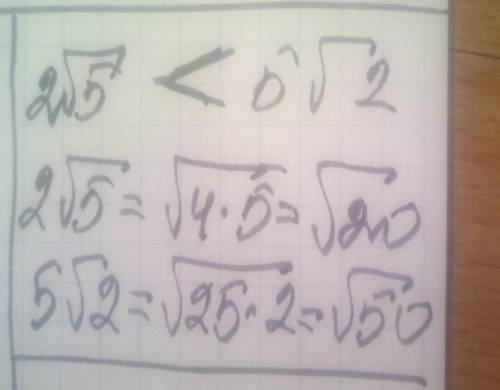 2√5 < 5√2
2√5 = √4·5 = √20
5√2 = √25·2 = √50